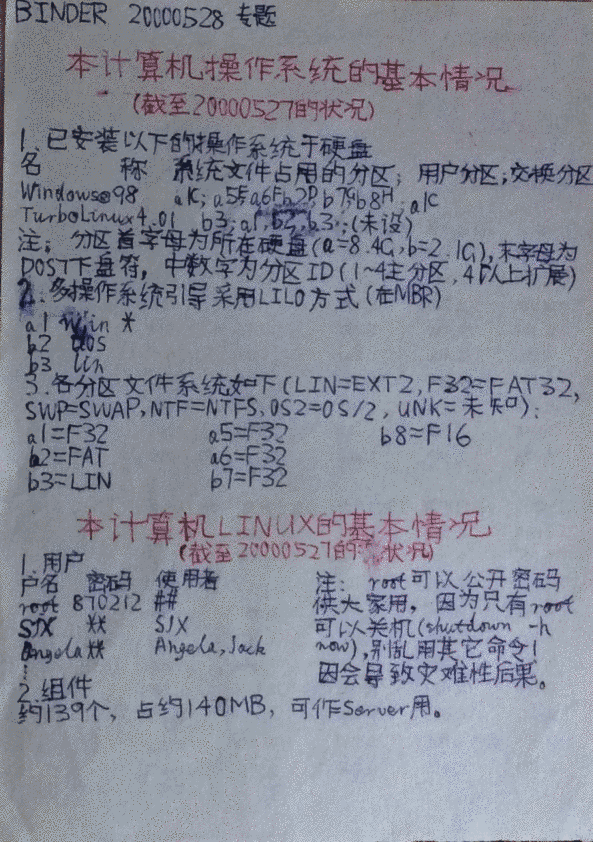 BINDER 20000528 专题
本计算机操作系统的基本情况
(截至20000527的状况)
1. 已安装以下的操作系统于硬盘
名 称 系统文件占用的分区; 用户分区;交换分区
Windows98 a1C; a5E,a6F,b2D,b7G,b8H; a1C
TurboLinux4.01 b3; a1,b2,b3; (未设)
注: 分区首字母为所在硬盘(a=8.4G,b=2.1G),末字母为
DOS下盘符, 中数字为分区ID(1~4主分区,4以上扩展)
2.多操作系统引导采用LILO方式(在MBR)
a1 Win *
b2 dos
b3 lin
3.各分区文件系统如下(LIN=EXT2,F32=FAT32,
SWP=SWAP,NTF=NTFS,OS2=OS/2,UNK=未知):
a1=F32 a5=F32 b8=F16
b2=FAT a6=F32
b3=LIN b7=F32
本计算机LINUX的基本情况
(截至20000527的状况)
1.用户
户名 密码 使用者
root 870212 ##
SJX ** SJX
Angela ** Angela,Jack
⋮
注: root可以公开密码
供大家用, 因为只有root
可以关机(shutdown -h
now),别乱用其它命令!
因会导致灾难性后果。
2.组件
约139个, 占约140MB, 可作Server用。